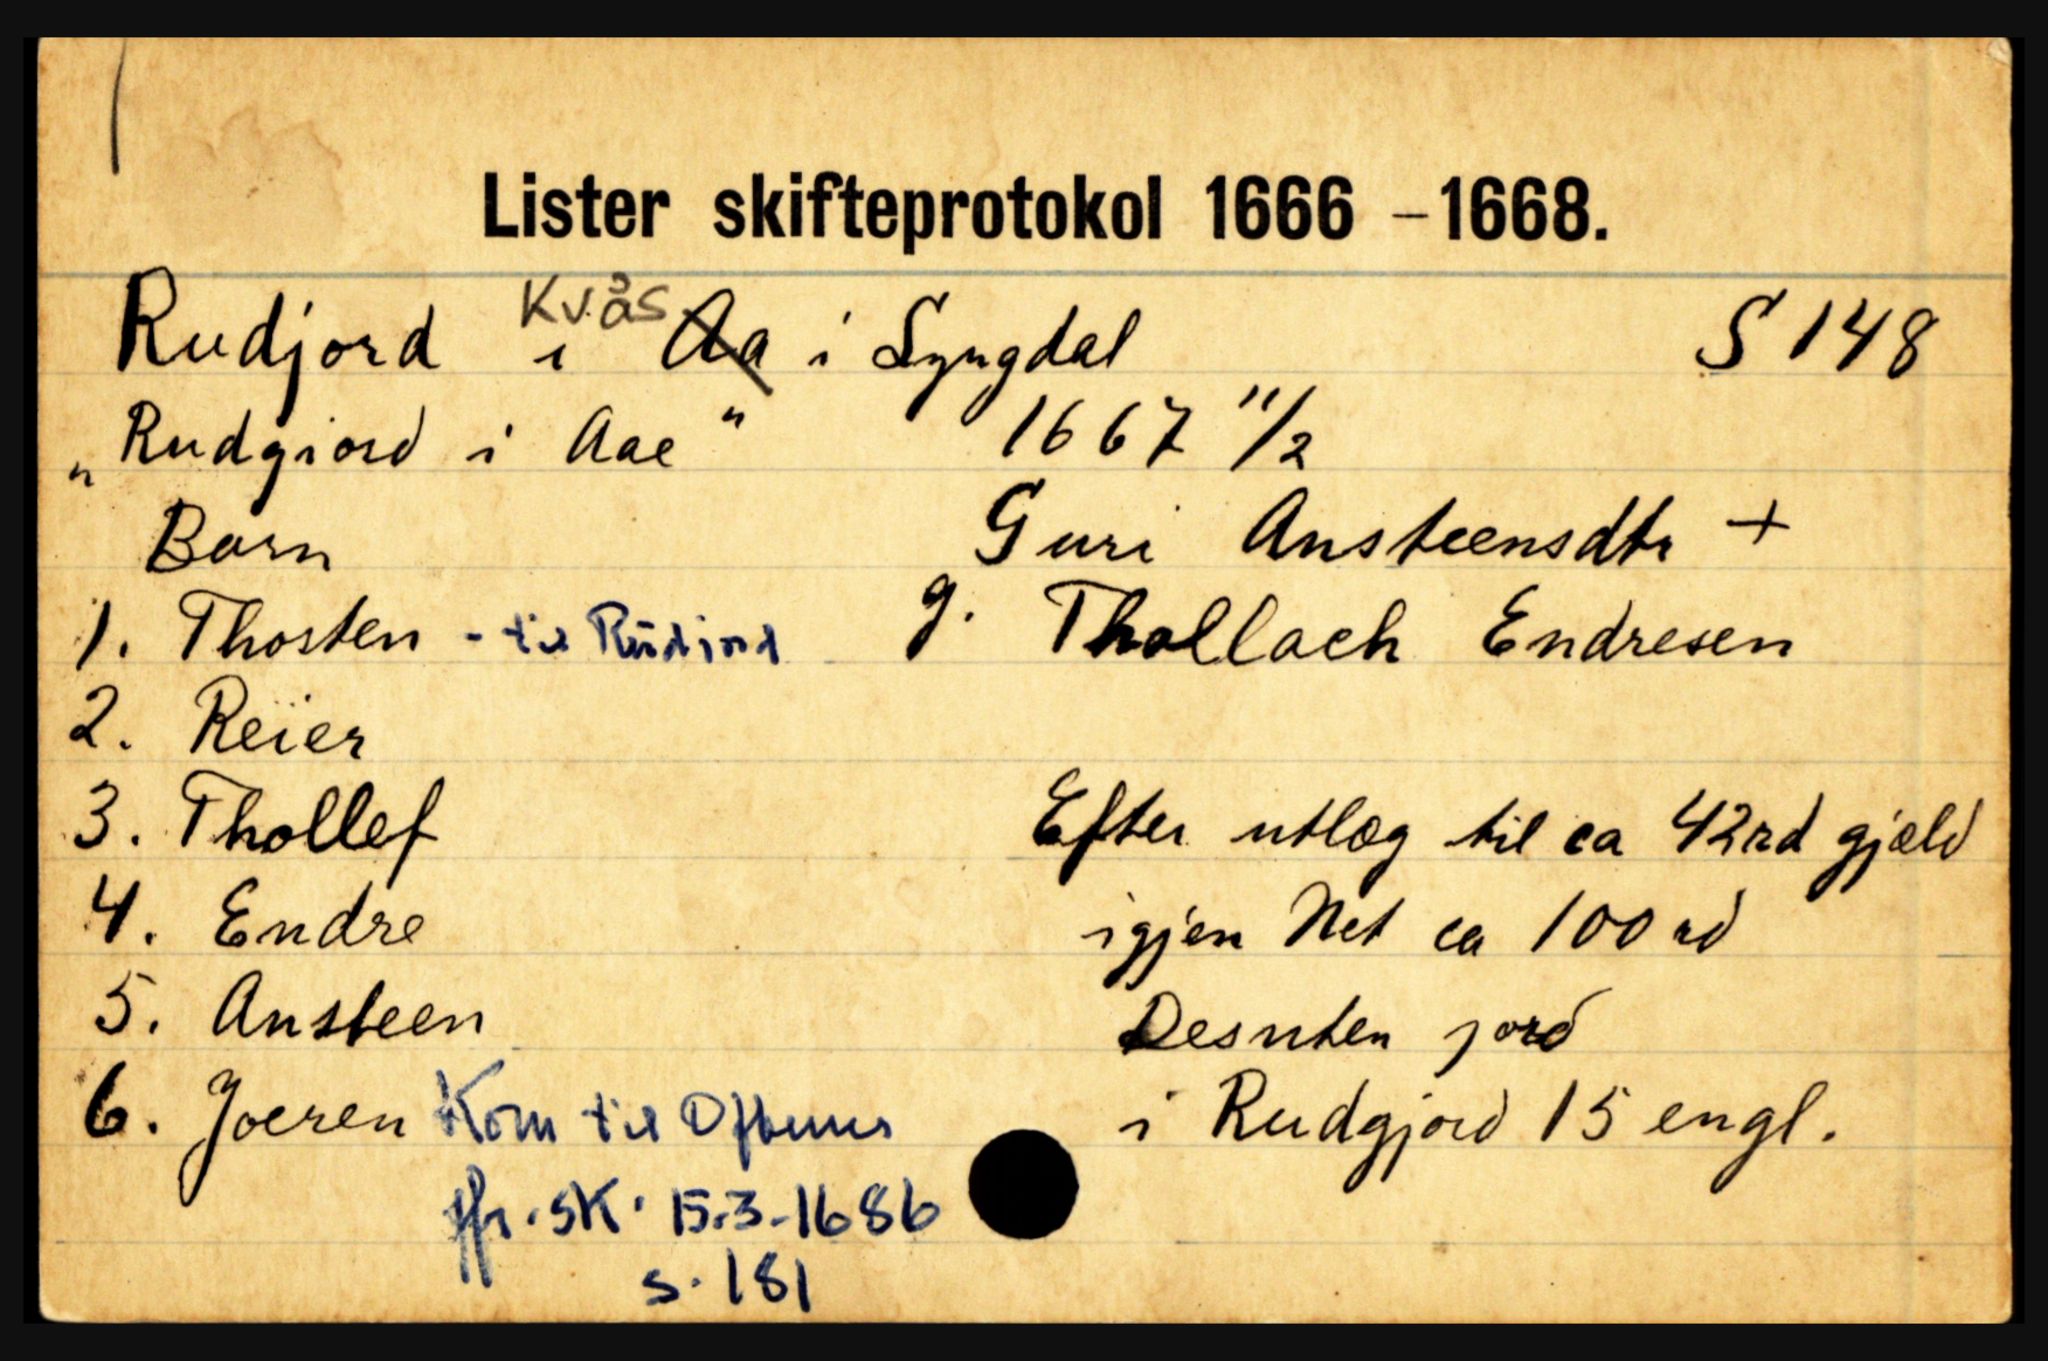 Lister skifteprotokol 1666 – 1668.
Rudjord i Kvås Aa i Lyngdal S 148
„Rudgiord i Aae" 1667 11/2
Barn Guri Ansteensdtr +
1. Thosten - til Rudjord g. Thollach Endresen
2. Reïer
3. Thollef Efter utlæg til ca 42 rd gjæld
4. Endre igjen Net ca 100 rd
5. Ansteen Desuten jord
6. Joeren Kom til i Rudgjord 15 engl.
jfr. sk. 15.3-1686
s. 181